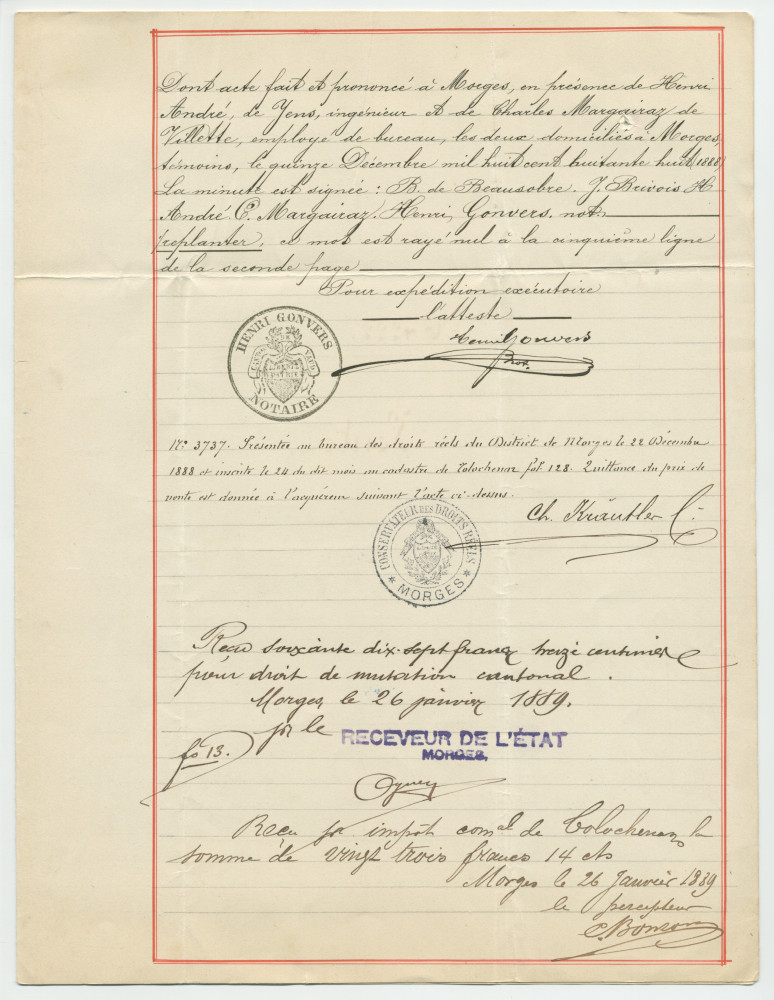 Dont acte fait et prononcé à Morges, en présence de Henri
André, de Yens, ingénieur et de Charles Margairaz de
Villette, employé de bureau, les deux domiciliés à Morges,
témoins, le quinze Décembre mil huit cent huitante huit (1888)
La minute est signée : B. de Beausobre. J. Brivois H
André. C. Margairaz. Henri Gonvers. not.
replanter, ce mot est rayé nul à la cinquième ligne
de la seconde page
Pour expédition exécutoire
l'atteste
Henri Gonvers
not.
HENRI GONVERS
NOTAIRE
No 3737. Présentée au bureau des droits réels du District de Morges le 22 Décembre
1888 et inscrite le 24 du dit mois au cadastre de Tolochenaz fol. 128. Quittance du prix de
vente est donnée à l'acquéreur suivant l'acte ci-dessus.
Ch. Kräutler
CONSERVATEUR DES DROITS RÉELS
* MORGES *
Reçu soixante dix-sept francs treize centimes
pour droit de mutation cantonal.
Morges, le 26 janvier 1889.
pr le
RECEVEUR DE L'ÉTAT
MORGES,
fo 13.
Reçu pr impôt comal de Tolochenaz la
somme de vingt trois francs 14 cts
Morges le 26 Janvier 1889
le percepteur